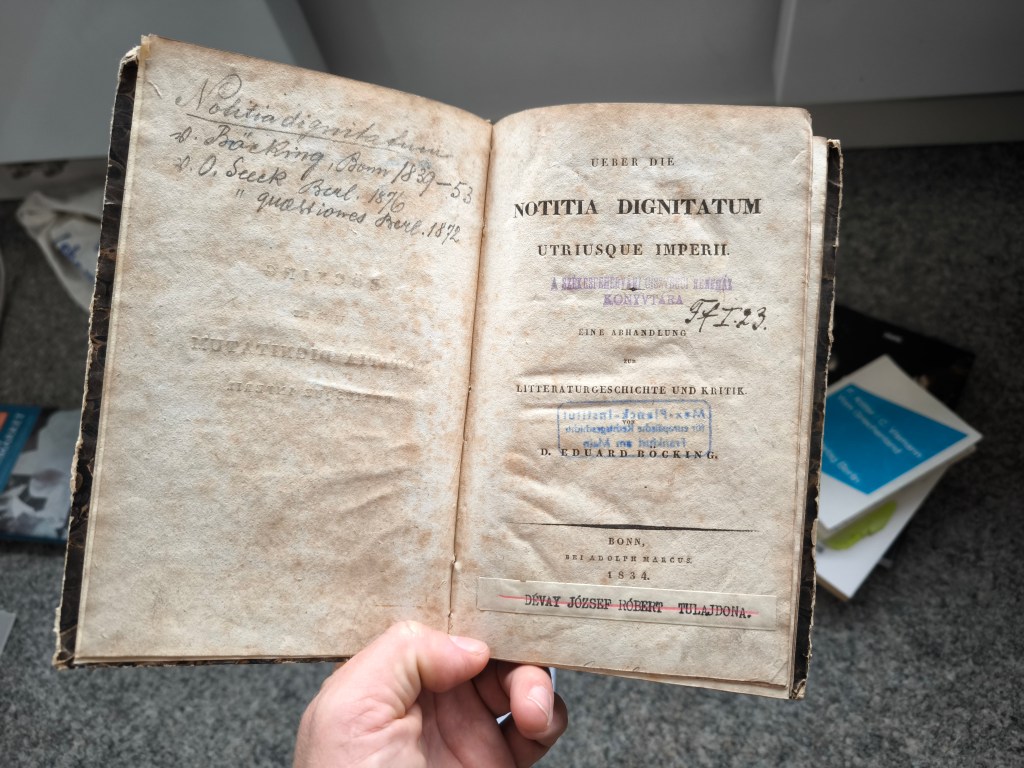 Notitia dignitatum
v. Böcking, Bonn 1839-53
v. O. Seeck Berl. 1876
" quaestiones Berl. 1872
UEBER DIE
NOTITIA DIGNITATUM
UTRIUSQUE IMPERII.
A SZÉKESFEHÉRVÁRI
KÖNYVTÁRA
Tf I.23.
EINE ABHANDLUNG
ZUR
LITTERATURGESCHICHTE UND KRITIK
Max-Planck-Institut
für europäische Rechtsgeschichte
Frankfurt am Main
VON
D. EDUARD BÖCKING,
BONN,
BEI ADOLPH MARCUS
1834.
DÉVAY JÓZSEF RÓBERT TULAJDONA.